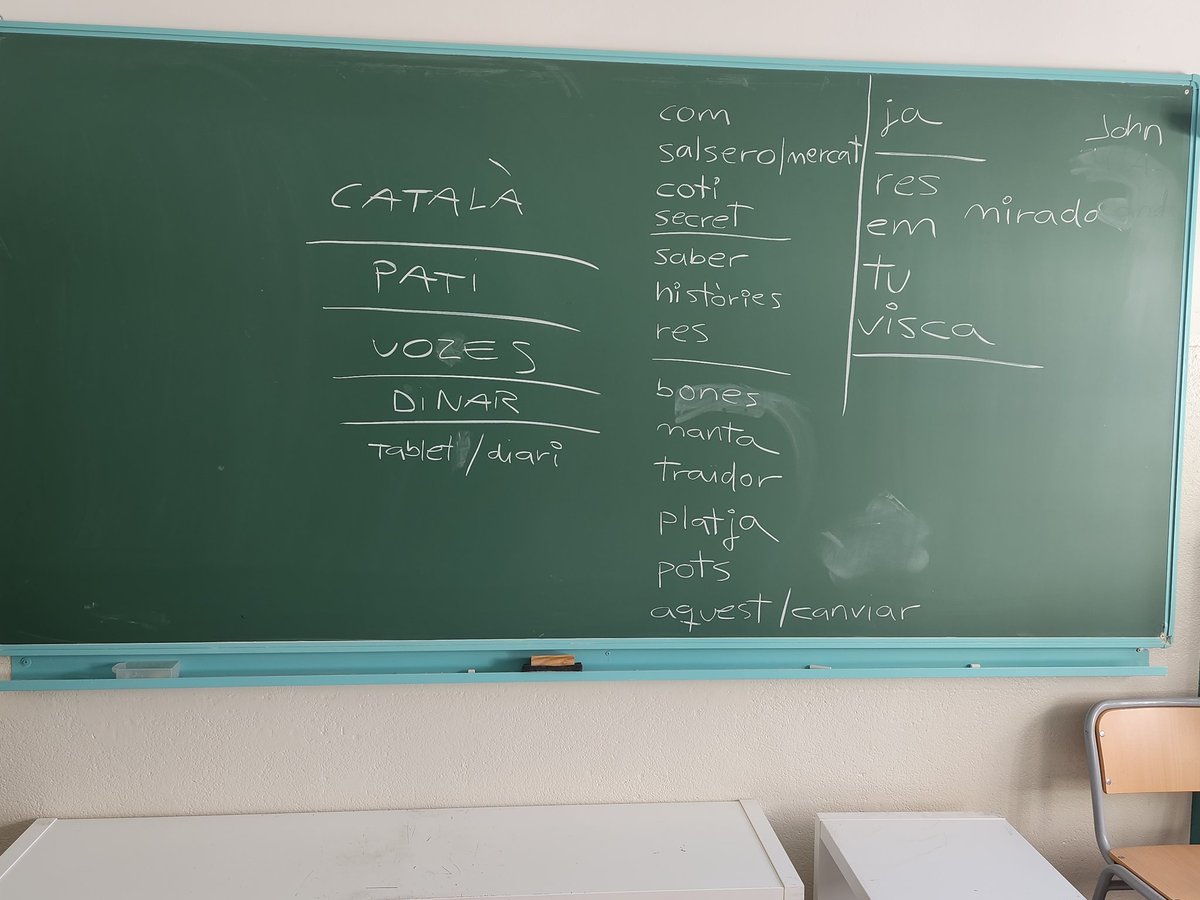 CATALÀ
PATI
VOZES
DINAR
Tablet /diari
com
salsero/mercat
coti
secret
saber
històries
res
bones
manta
traidor
platja
pots
aquest/canviar
ja
res
em
tu
visca
John
mirado